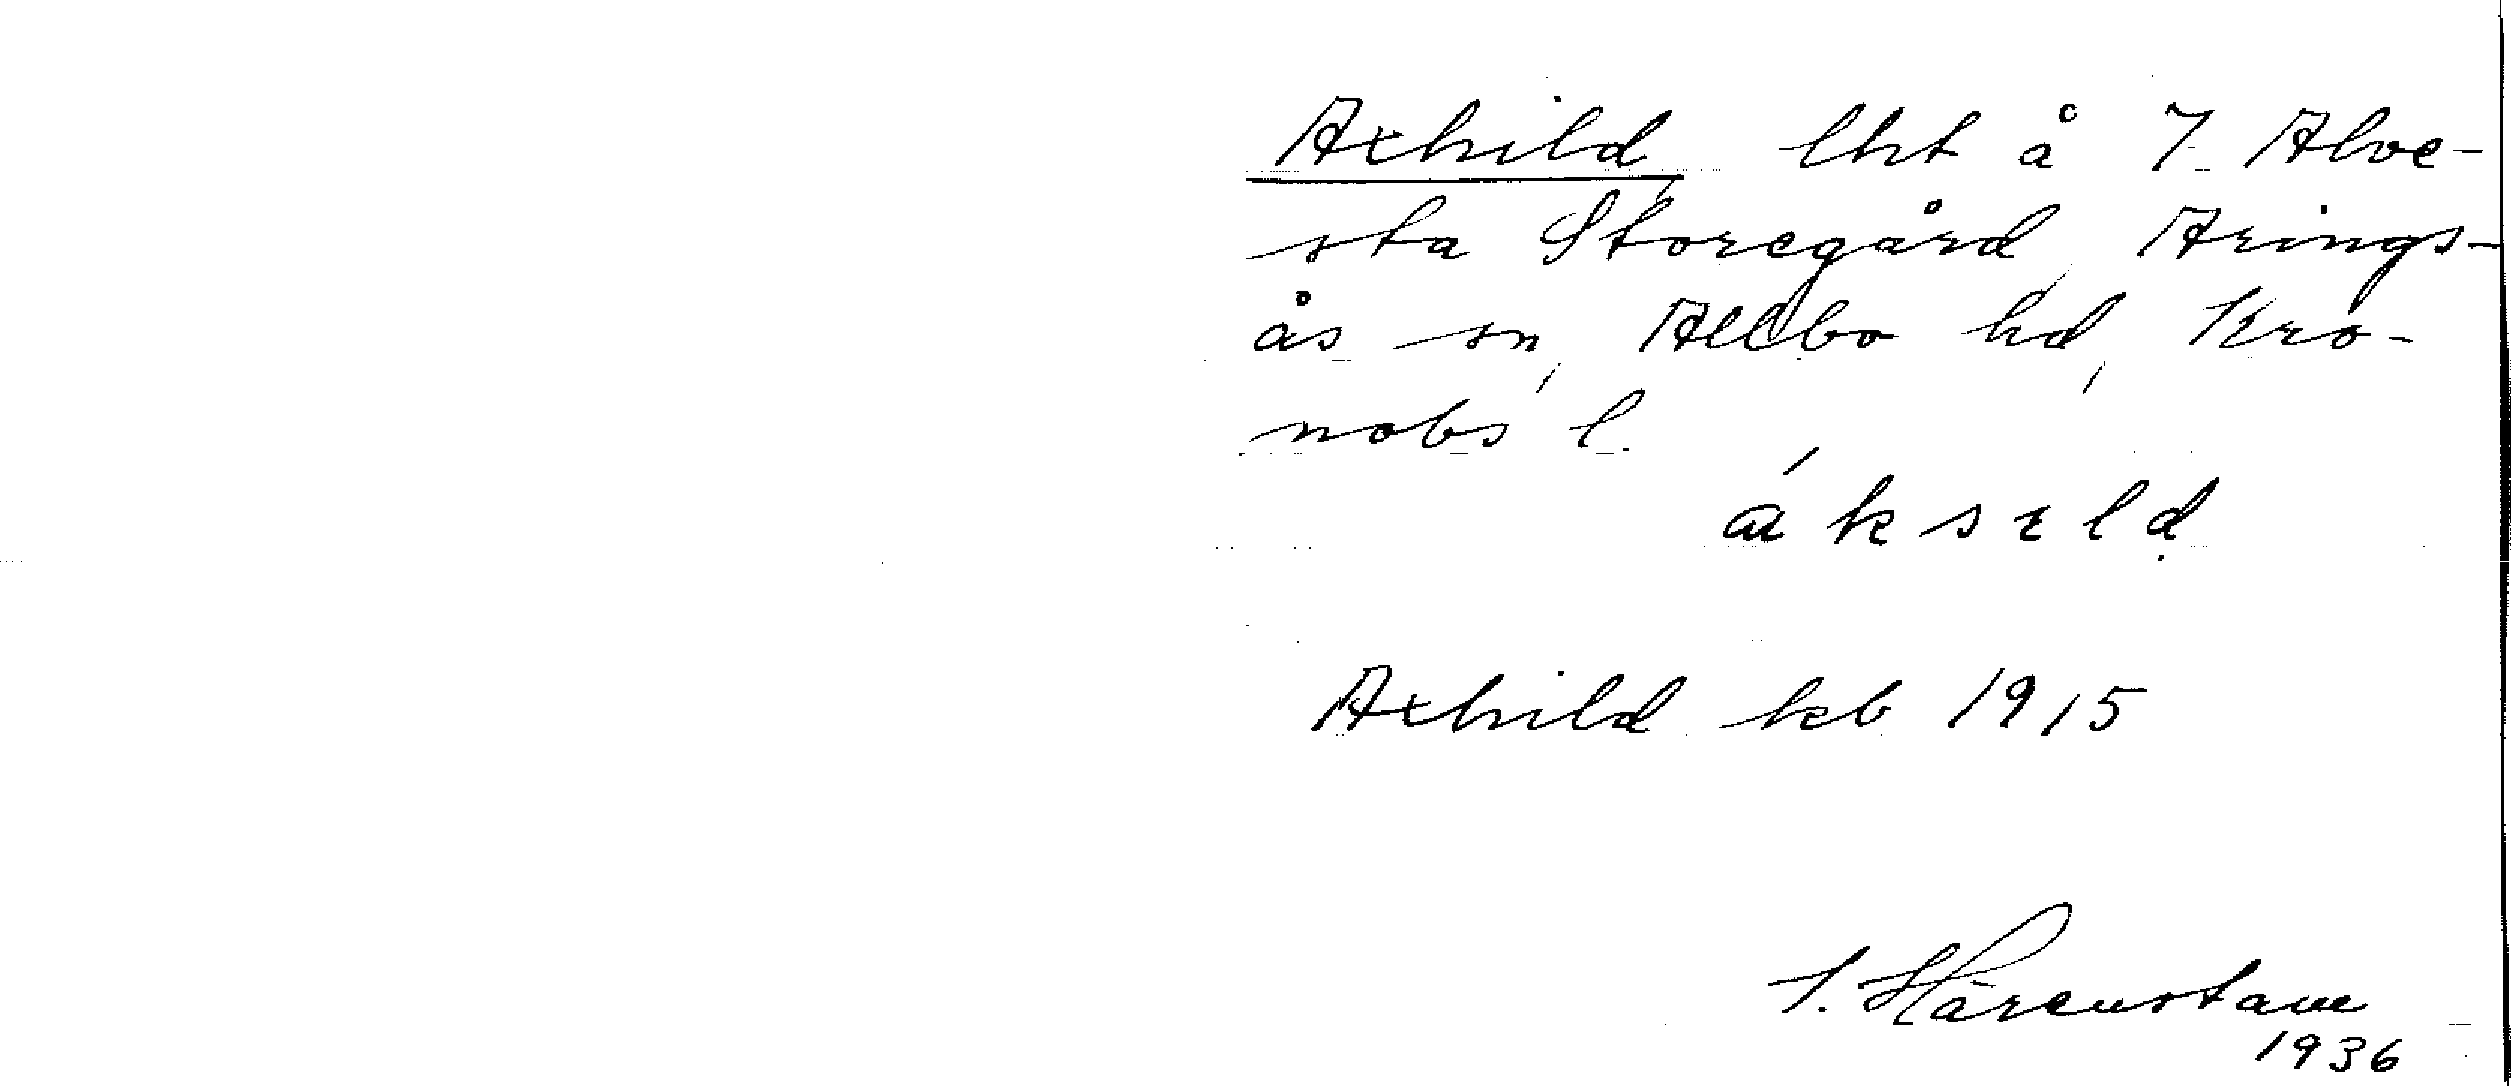 Axhild, lht å 7 Alve-
sta Storegård, Arings-
ås sn, Allbo hd, Kro-
nobs l.
áksɩld
Axhild kb 1915
S. Härenstam
1936